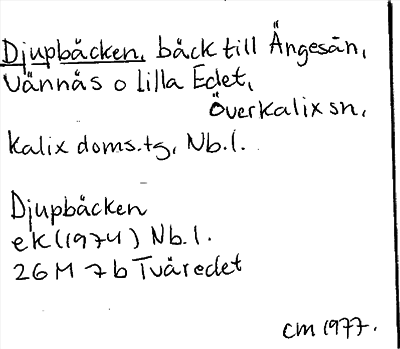 Djupbäcken, bäck till Ängesån,
Vännäs o Lilla Edet,
Överkalix sn,
Kalix doms.tg, Nb.l.
Djupbäcken
ek (1974) Nb.l.
26M 7b Tväredet
CM 1977.